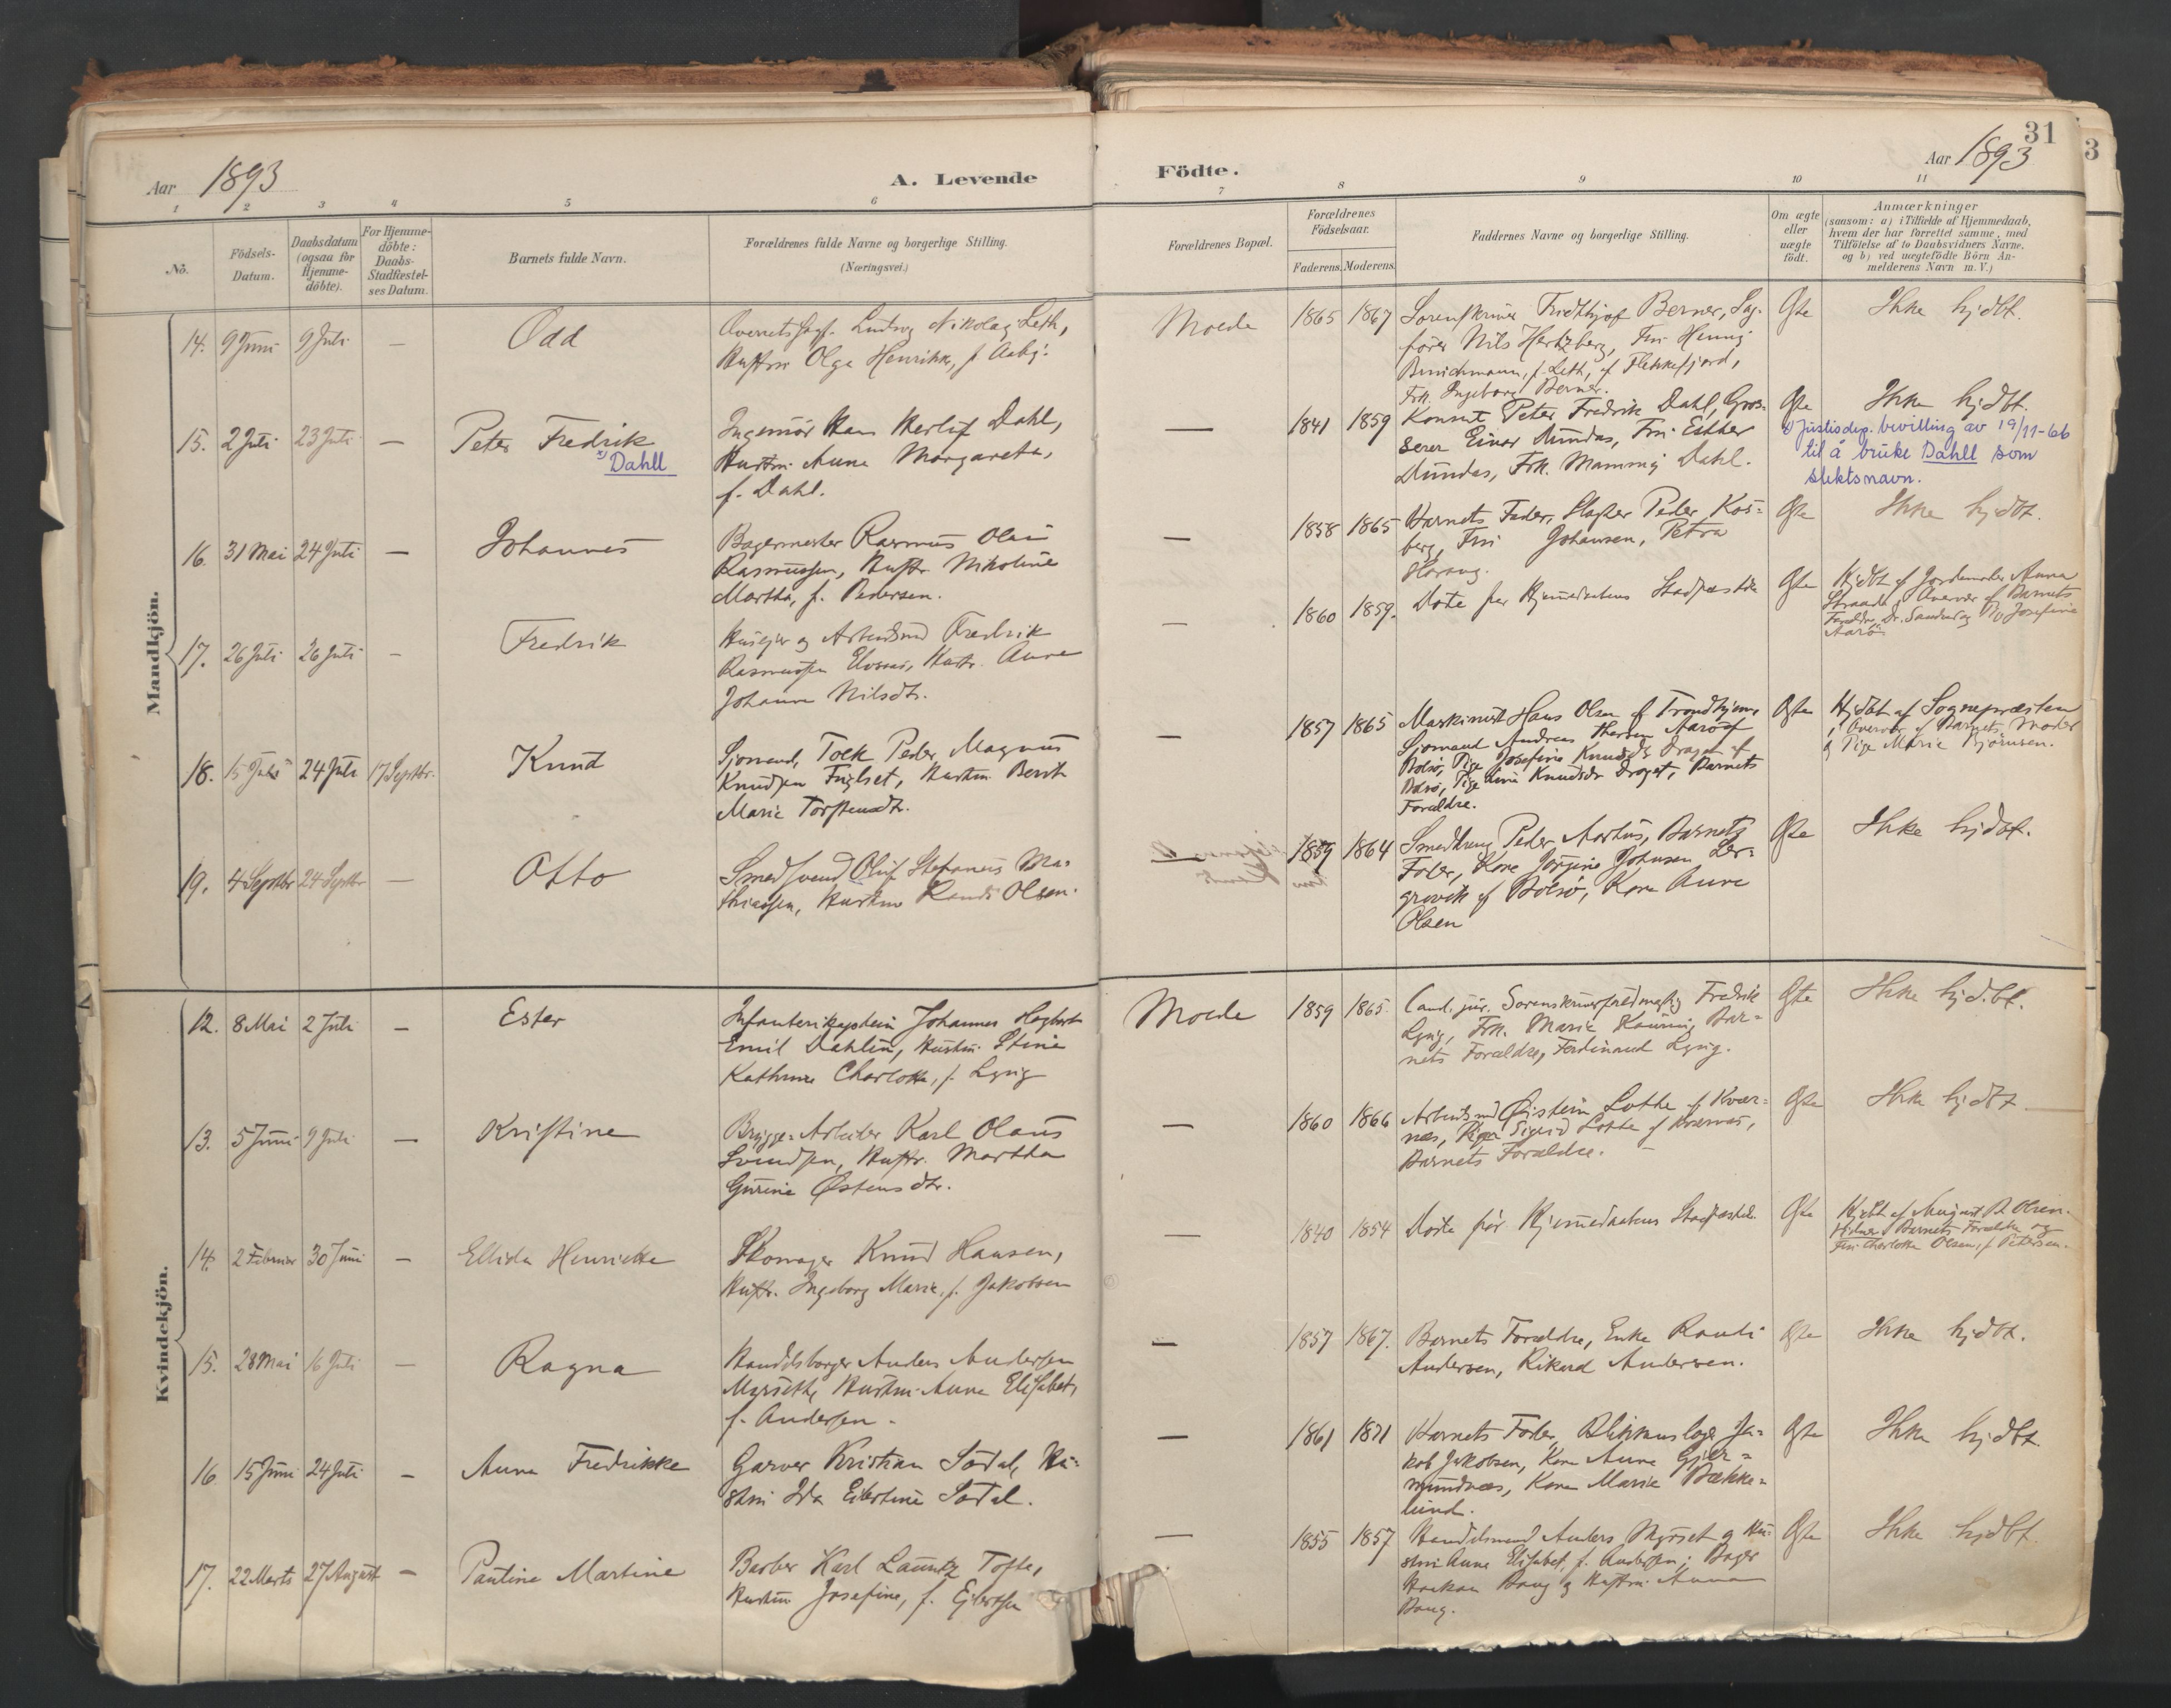 31
3
Aar 1893
A. Levende
Födte.
Aar 1893
1 2 3 4 5 6 7 8 9 10 11
No.
Födsels-
Datum.
Daabsdatum
(ogsaa for
Hjemme-
döbte).
For Hjemme-
döbte:
Daabs-
Stadfæstel-
ses Datum.
Barnets fulde Navn.
Forældrenes fulde Navne og borgerlige Stilling.
(Næringsvei.)
Forældrenes Bopæl.
Forældrenes
Födselsaar.
Faderens. Moderens.
Faddernes Navne og borgerlige Stilling.
Om ægte
eller
uægte
födt.
Anmærkninger
(saasom: a) i Tilfælde af Hjemmedaab,
hvem der har forrettet samme, med
Tilföielse af to Daabsvidners Navne.
og b) ved uægtefödte Börn An-
melderens Navn m. V.)
Mandkjön.
14. 9 Juni 9 Juli — Odd
Ludvig Nikolai Leth,
Hustru Olga Henrikke, f. Aaby.
Molde 1865 1867
Sorenskriver Fridthjof Berner, Sag-
förer Nils Hertzberg, Fru Henny
f. Leth, af Flekkefjord,
Frk. Ingeborg Berner.
Ægte Ikke hjdbt.
15. 2 Juli 23 Juli — Peter Fredrik
x) Dahll
Ingeniör Hans Herluf Dahl,
Hustru Anna Margareta,
f. Dahl.
— 1841 1859
Konsul Peter Fredrik Dahl, Gros-
serer Einar Dundas, Fru Esther
Dundas, Frk. Mammy Dahl.
Ægte Ikke hjdbt.
x) Justisdep. bevilling av 19/11-66
til å bruke Dahll som
slektsnavn.
16. 31 Mai 24 Juli — Johannes
Bagermester Rasmus Olai
Rasmussen, Hustr. Nikoline
Martha, f. Pedersen.
— 1858 1865
Barnets Fader, Slagter Peder Kos-
berg, Fru Johansen, Petra
Ægte Ikke hjdbt.
17. 26 Juli 26 Juli — Fredrik
Huseier og Arbeidsmd Fredrik
Rasmussen Hustr. Anne
Johanne Nilsdtr.
— 1860 1859.
Döde för Hjemmedaabens Stadfæstelse
Ægte Hjdbt af Jordemoder Anna
Strande, Overvær af Barnets
Forældre, Dr. Sandved og Josefine
Aarö
18. 15 Juli 24 Juli 17 Septbr. Knud
Sjömand, Tolk Peder Magnus
Knudsen Fuglset, Hustru Berit
Marie Torstensdtr.
— 1857 1865
Maskinist Hans Olsen af Trondhjem,
Sjömand Andreas Thersen Aarö af
Bolsö, Pige Josefine Knudsdtr Draget af
Bolsö, Pige Line Knudsdtr Draget, Barnets
Forældre.
Ægte Hjdbt af Sognepræsten
i Overvær af Barnets Moder
og Pige Marie Björnsen.
19. 4 Septbr 24 Septbr — Otto
Smedsvend Oluf Stefanus Ma-
thiassen, Hustru Randi Olsen.
— 1859 1864
Peder Aarhus, Barnets
Fader, Kone Jörgine Johnsen Ler-
grovik af Bolsö, Kone Anne
Olsen
Ægte Ikke hjdbt.
Kvindekjön.
12. 8 Mai 2 Juli — Ester
Infanterikaptein Johannes Hagbart
Emil Dahlin, Hustru Stine
Kathrine Charlotte, f. Lyng
Molde 1859 1865.
Cand. jur. Sorenskriverfuldmægtig Fredrik
Lyng, Frk. Marie Kaurin, Bar-
nets Forældre, Ferdinand Lyng.
Ægte Ikke hjd.bt.
13. 5 Juni 9 Juli — Kristine
Brygge-Arbeider Karl Olaus
Svendsen, Hustr. Martha
Gurine Östensdtr.
— 1860 1866
Arbeidsmd Öistein Lothe af Kvær-
næs, Pige Sigrid Lothe af Kværnæs,
Barnets Forældre.
Ægte Ikke hjdbt
14. 2 Februar 30 Juni — Ellida Henriette
Skomager Knud Hansen,
Hustr. Ingeborg Marie, f. Jakobsen
— 1840 1854
Döde för Hjemmedaabens Stadfæstelse.
Ægte Hjdbt af August B. Olsen.
Vidner Barnets Forældre og
Fru Charlotte Olsen, f. Petersen.
15. 28 Mai 16 Juli — Ragna
Handelsborger Anders Andersen
Myrseth, Hustru Anne Elisabet,
f. Andersen.
— 1857 1867.
Barnets Forældre, Enke Randi
Andersen, Rikard Andersen.
Ægte Ikke hjdbt.
16 15 Juni 24 Juli — Anna Fredrikke
Garver Kristian Södal, Hu-
stru Ida Eilertine Södal.
— 1861 1871
Barnets Fader, Blikkenslager Ja-
kob Jakobsen, Kone Anne Gjer-
mundnæs, Kone Marie Bække-
lund.
Ægte Ikke hjdbt.
17. 22 Marts 27 August — Pauline Martine
Barber Karl Lauritz Tofte,
Hustru Josefine, f. Ejlertsen
— 1855 1857
Handelsmand Anders Myrset og Hu-
stru Anne Elisabet, f. Andersen; Bager
Haakon Haug og Hustru Anna
Haug.
Ægte Ikke hjdbt.